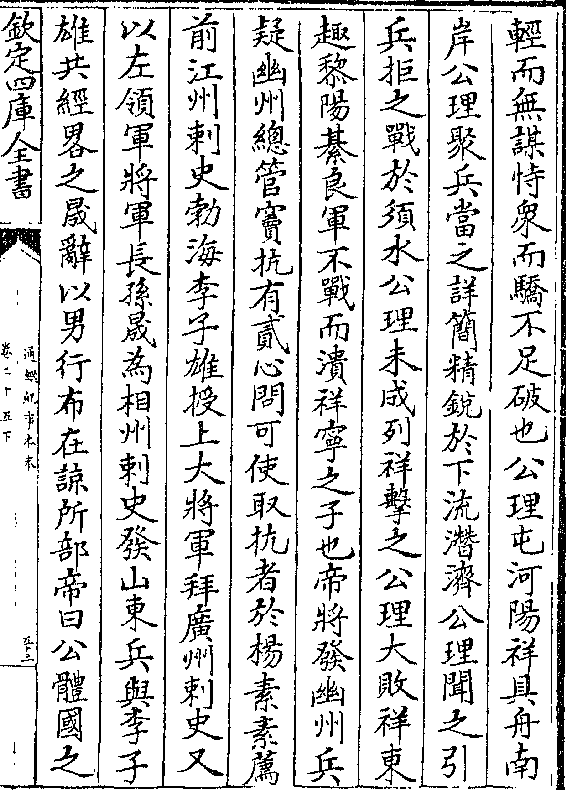 輕而無謀恃衆而驕不足破也公理屯河陽祥具舟南
岸公理聚兵當之詳簡精銳於下流潛濟公理聞之引
兵拒之戰於須水公理未成列祥擊之公理大敗祥東
趣黎陽綦良軍不戰而潰祥寧之子也帝將發幽州兵
疑幽州總管竇抗有貳心問可使取抗者於楊素素薦
前江州刺史勃海李子雄授上大將軍拜廣州刺史又
以左領軍將軍長孫晟為相州刺史發山東兵與李子
雄共經畧之晟辭以男行布在諒所部帝曰公體國之
欽定四庫全書
通鑑紀事本末
卷二十五下